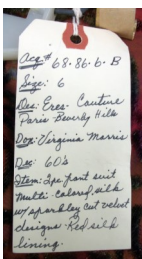 Acq# 68.86.6.B
Size: 6
Des: Eres- Couture
Paris Beverly Hills
Don: Virginia Marris
Dec: 60's
Item: 2pc. pant suit
multi-colored, silk
w/ sparkley cut velvet
designs. Red silk
lining.